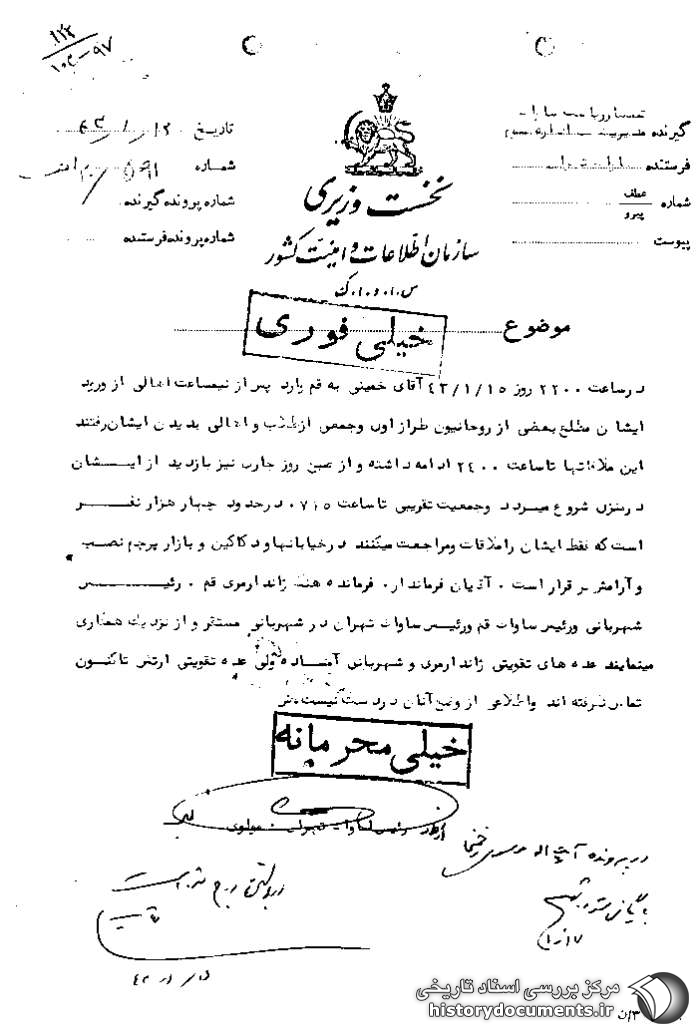 ۱۱۲
۱۰۲-۹۷
گیرنده
فرستنده
شماره عطف
پیرو
پیوست
نخست وزیری
سازمان اطلاعات و امنیت کشور
س.ا.و.ا.ک
تاریخ
شماره
شماره پرونده گیرنده
شماره پرونده فرستنده
موضوع
خیلی فوری
در ساعت ۲۲۰۰ روز ۴۳/۱/۱۵ آقای خمینی به قم وارد پس از نیمساعت اهالی از ورود
ایشان مطلع بعضی از روحانیون طراز اول وجمعی از طلاب و اهالی بدیدن ایشان رفتند
این ملاقاتها تا ساعت ۲۴۰۰ ادامه داشته و از صبح روز جاری نیز بازدید از ایشان
در منزل شروع میگردد وجمعیت تقریبی تا ساعت ۰۷۱۵ در حدود چهار هزار نفر
است که فقط ایشان را ملاقات ومراجعت میکنند در خیابانها و دکاکین و بازار پرچم نصب
و آرامش بر قرار است . آقایان فرماندار . فرمانده هنگ ژاندارمری قم . رئیس
شهربانی ورئیس ساواک قم ورئیس ساواک تهران در شهربانی مستقر و از نزدیک همکاری
مینمایند عده های تقویتی ژاندارمری و شهربانی آماده ولی عده تقویتی ارتش تاکنون
تماس نگرفته اند واطلاعی از وضع آنان در دست نیست
خیلی محرمانه
رئیس ساواک تهران . مولوی
در پرونده آیت اله
مرکز بررسی اسناد تاریخی
historydocuments.ir